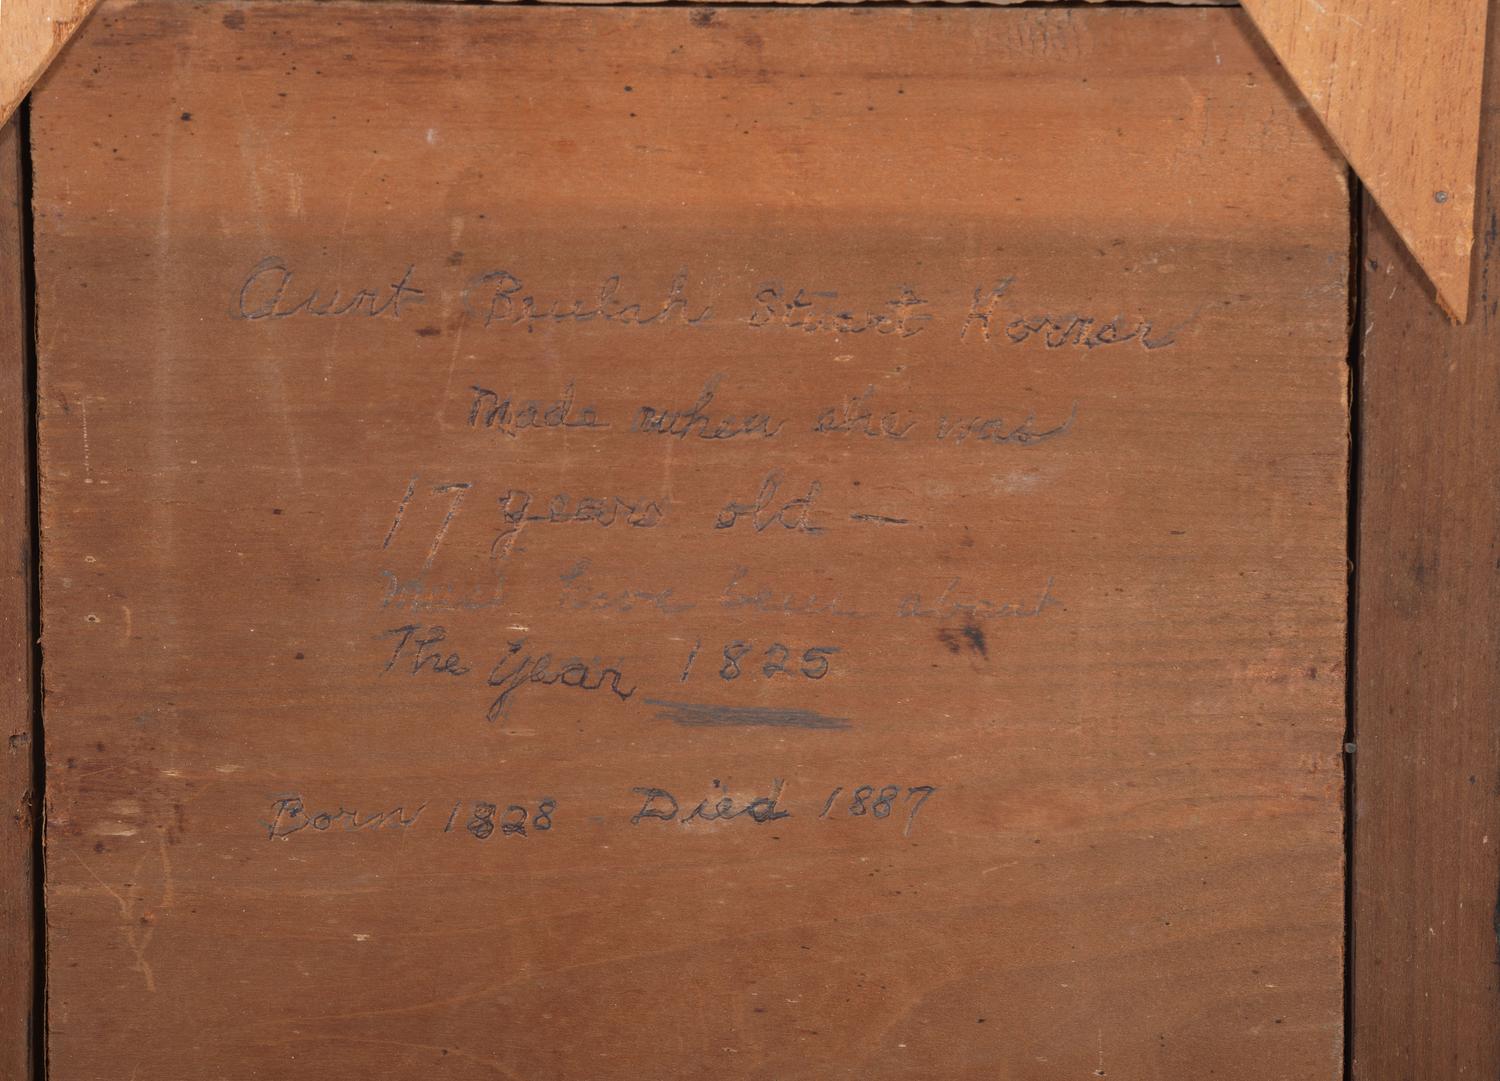 Aunt Beulah Stuart Horner
Made when she was
17 years old —
Must have been about
The year 1825
Born 1828 - Died 1887